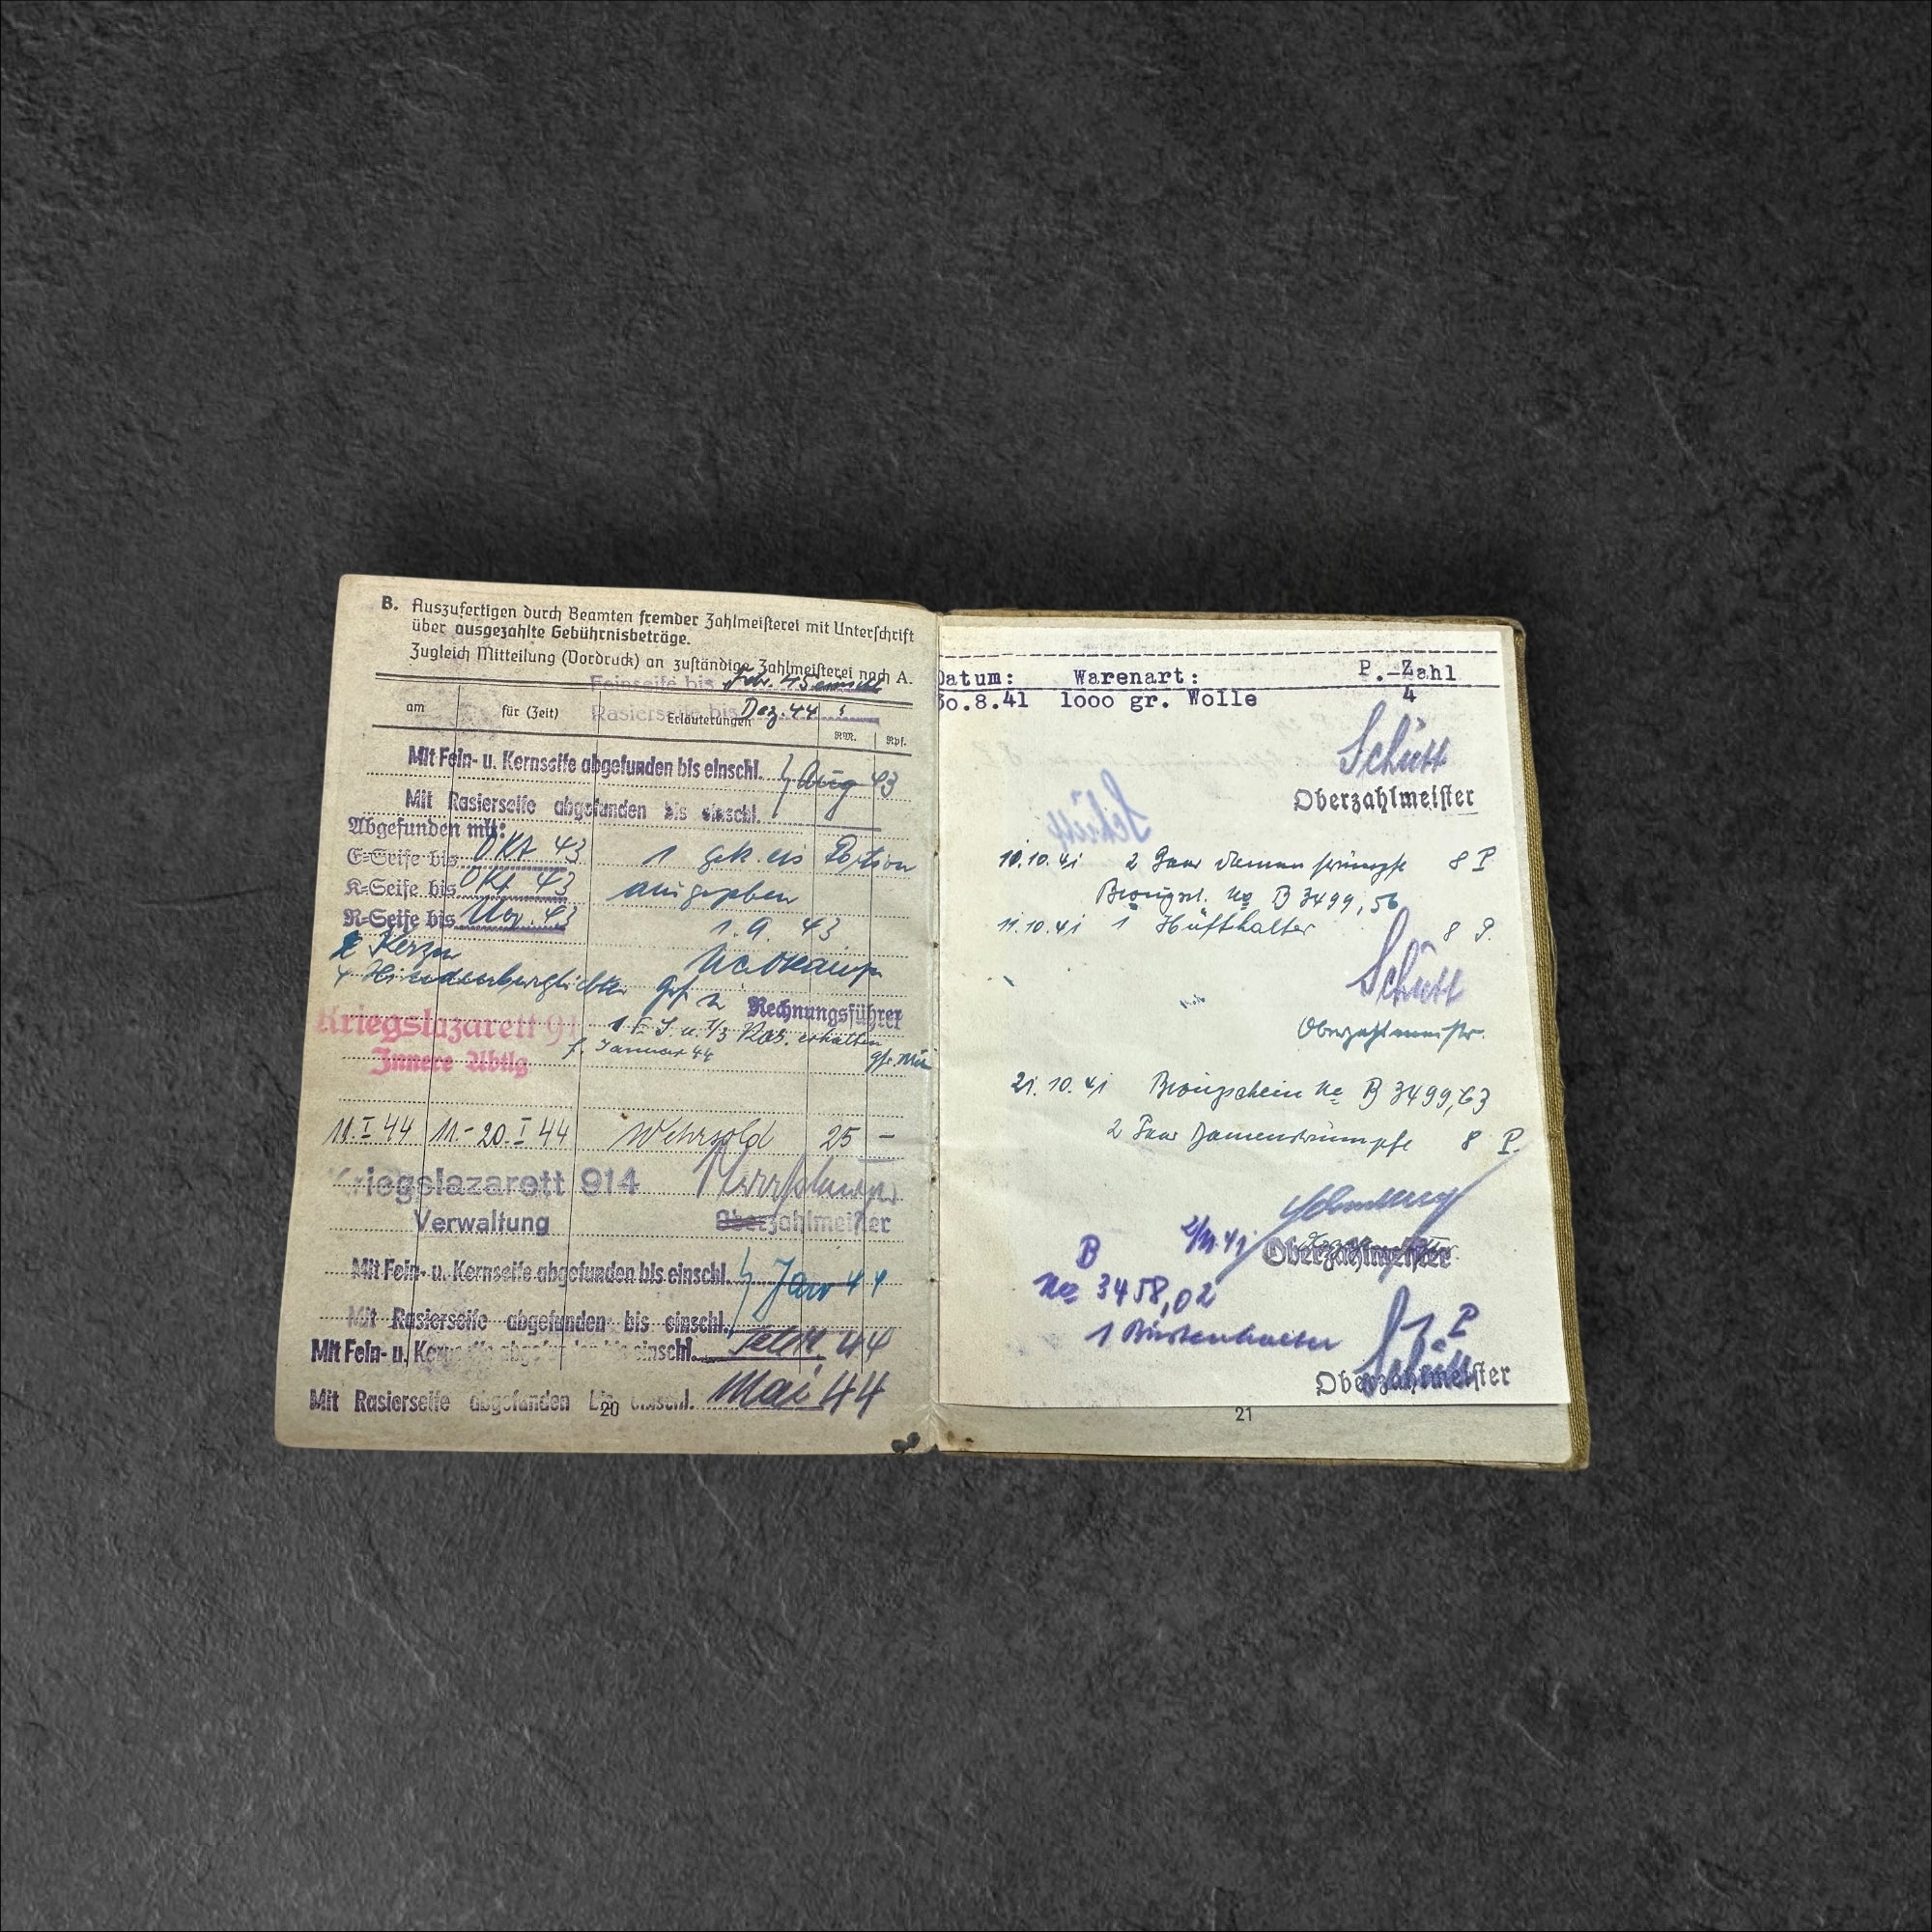 B. Auszufertigen durch Beamten fremder Zahlmeisterei mit Unterschrift
über ausgezahlte Gebührnisbeträge.
Zugleich Mitteilung (Vordruck) an zuständige Zahlmeisterei nach A.
Feinseife bis
Rasierseife bis Dez. 44
am für (Zeit) Erläuterungen
RM. Rpf.
Mit Fein- u. Kernseife abgefunden bis einschl. Aug 43
Mit Rasierseife abgefunden bis einschl.
Abgefunden mit:
E-Seife bis Okt 43
1 Portion
K-Seife bis Okt 43
ausgegeben
R-Seife bis Nov. 43
1. 9. 43
Kerzen
4 Hindenburglichter
Rechnungsführer
Kriegslazarett 91
Innere Abtlg
erhalten
f. Januar 44
11. I 44 11.- 20. I 44 Wehrsold 25 –
Kriegslazarett 914
Verwaltung
Oberzahlmeister
Mit Fein- u. Kernseife abgefunden bis einschl. Jan 44
Mit Rasierseife abgefunden bis einschl.
Mit Fein- u. Kernseife abgefunden bis einschl. 44
Mit Rasierseife abgefunden bis einschl. Mai 44
20
Datum: Warenart: P.-Zahl
30.8.41 1000 gr. Wolle 4
Schütt
Oberzahlmeister
10.10.41 2 Paar Damenstrümpfe 8 P
No B 3499,56
11.10.41 1 Hüfthalter 8 P.
Schütt
Oberzahlmeister.
21.10.41 Bezugschein No B 3499,63
2 Paar Damenstrümpfe 8 P.
Oberzahlmeister
B
No 3458,02
1 Büstenhalter
P
Schütt
Oberzahlmeister
21